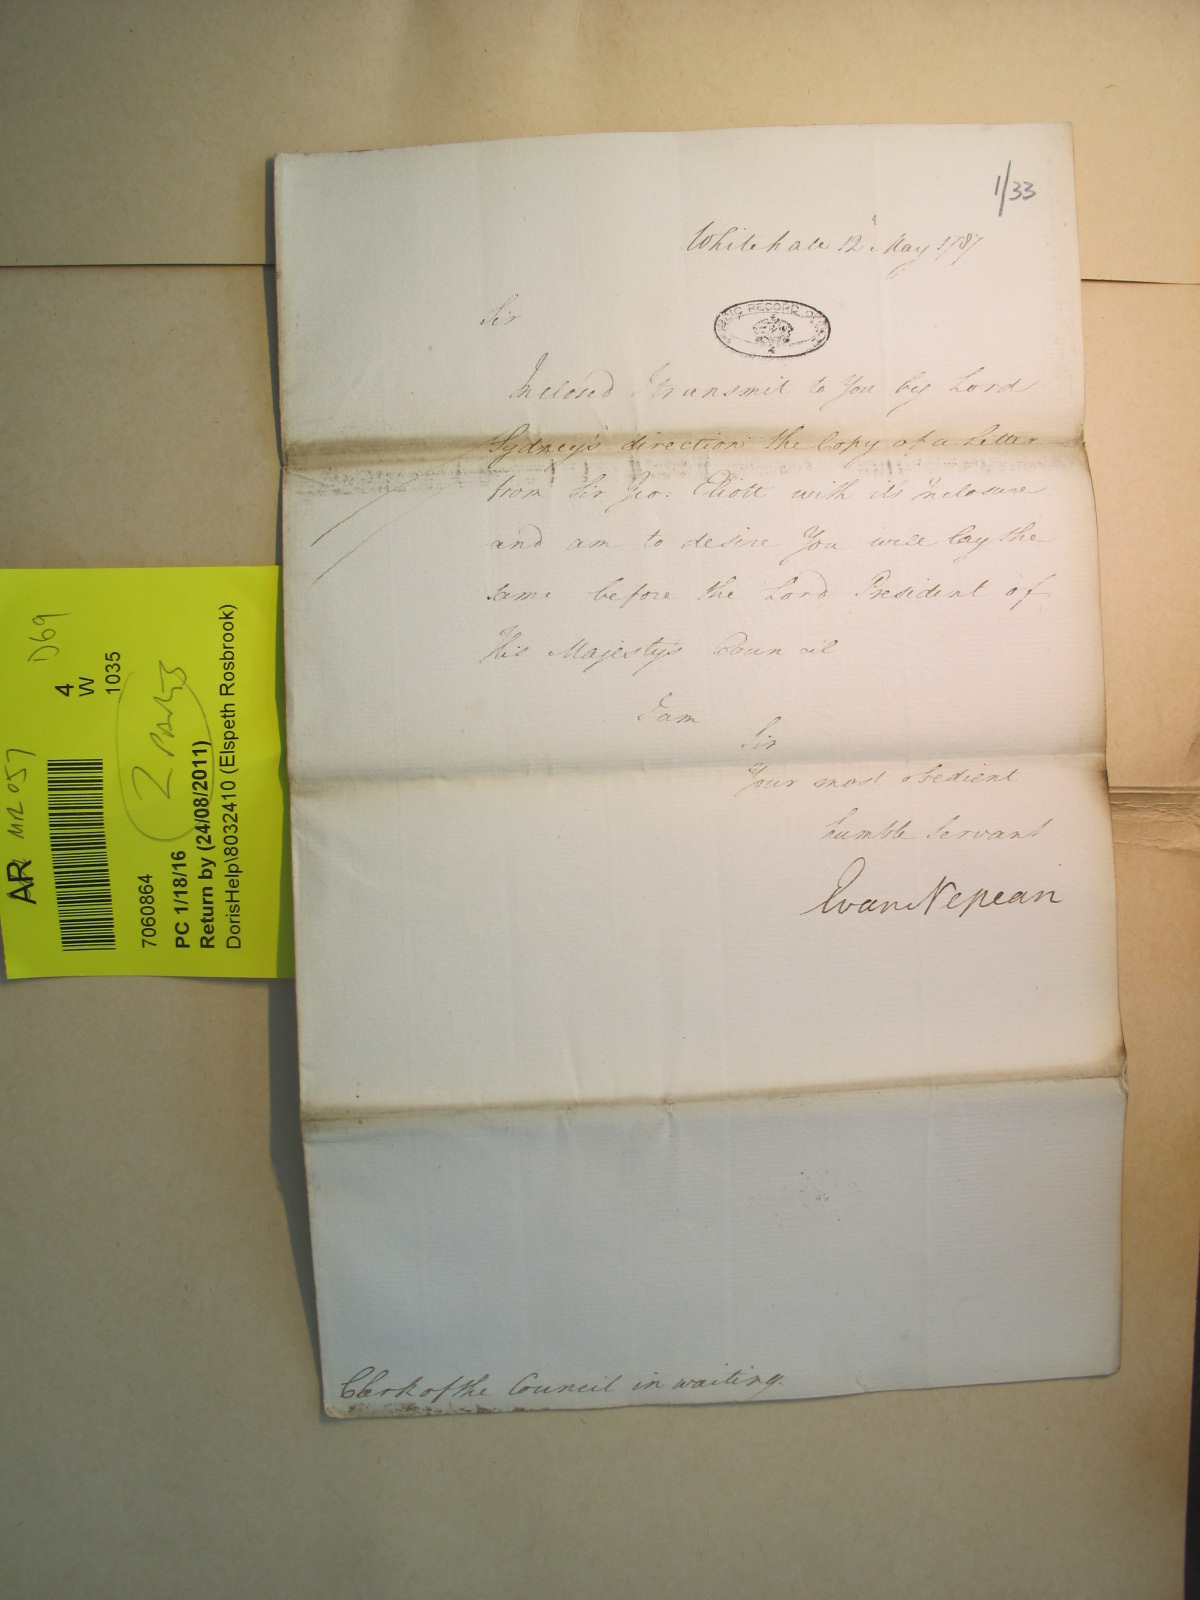 1/33
Whitehall 12th May 1787
Sir
PUBLIC RECORD OFFICE
Inclosed I transmit to You by Lord
Sydney's direction the Copy of a Letter
from Sir Geo: Eliott with it's Inclosure
and am to desire You will lay the
same before the Lord President of
His Majesty's Council
I am
Sir
Your most obedient
humble Servant
Evan Nepean
Clerk of the Council in waiting.
AR MR 057
D69
4
W
1035
7060864
2 PARTS
PC 1/18/16
Return by (24/08/2011)
DorisHelp\8032410 (Elspeth Rosbrook)